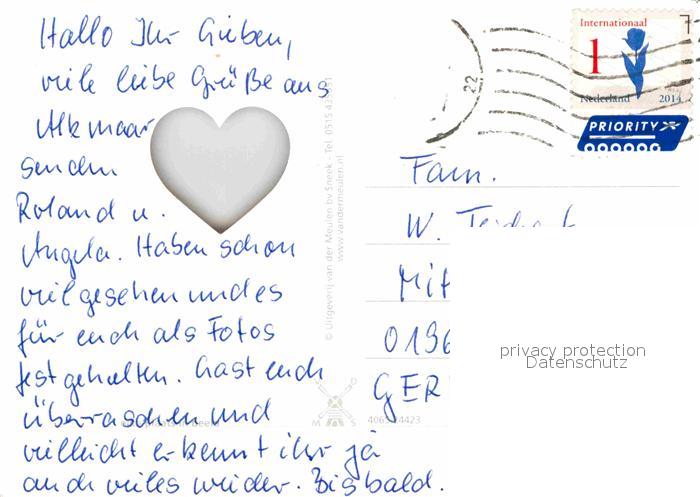 Hallo Ihr Lieben,
viele liebe Grüße aus
Alkmaar
senden
Roland u.
Angela. Haben schon
viel gesehen und es
für euch als Fotos
festgehalten. Lasst euch
überraschen und
vielleicht erkennt ihr ja
auch vieles wieder. Bis bald.
© Uitgeverij van der Meulen bv Sneek - Tel. 0515
www.vandermeulen.nl
22
Internationaal
1
Nederland 2014
PRIORITY
Fam.
W.
Mit
0196
GER
privacy protection
Datenschutz
M S